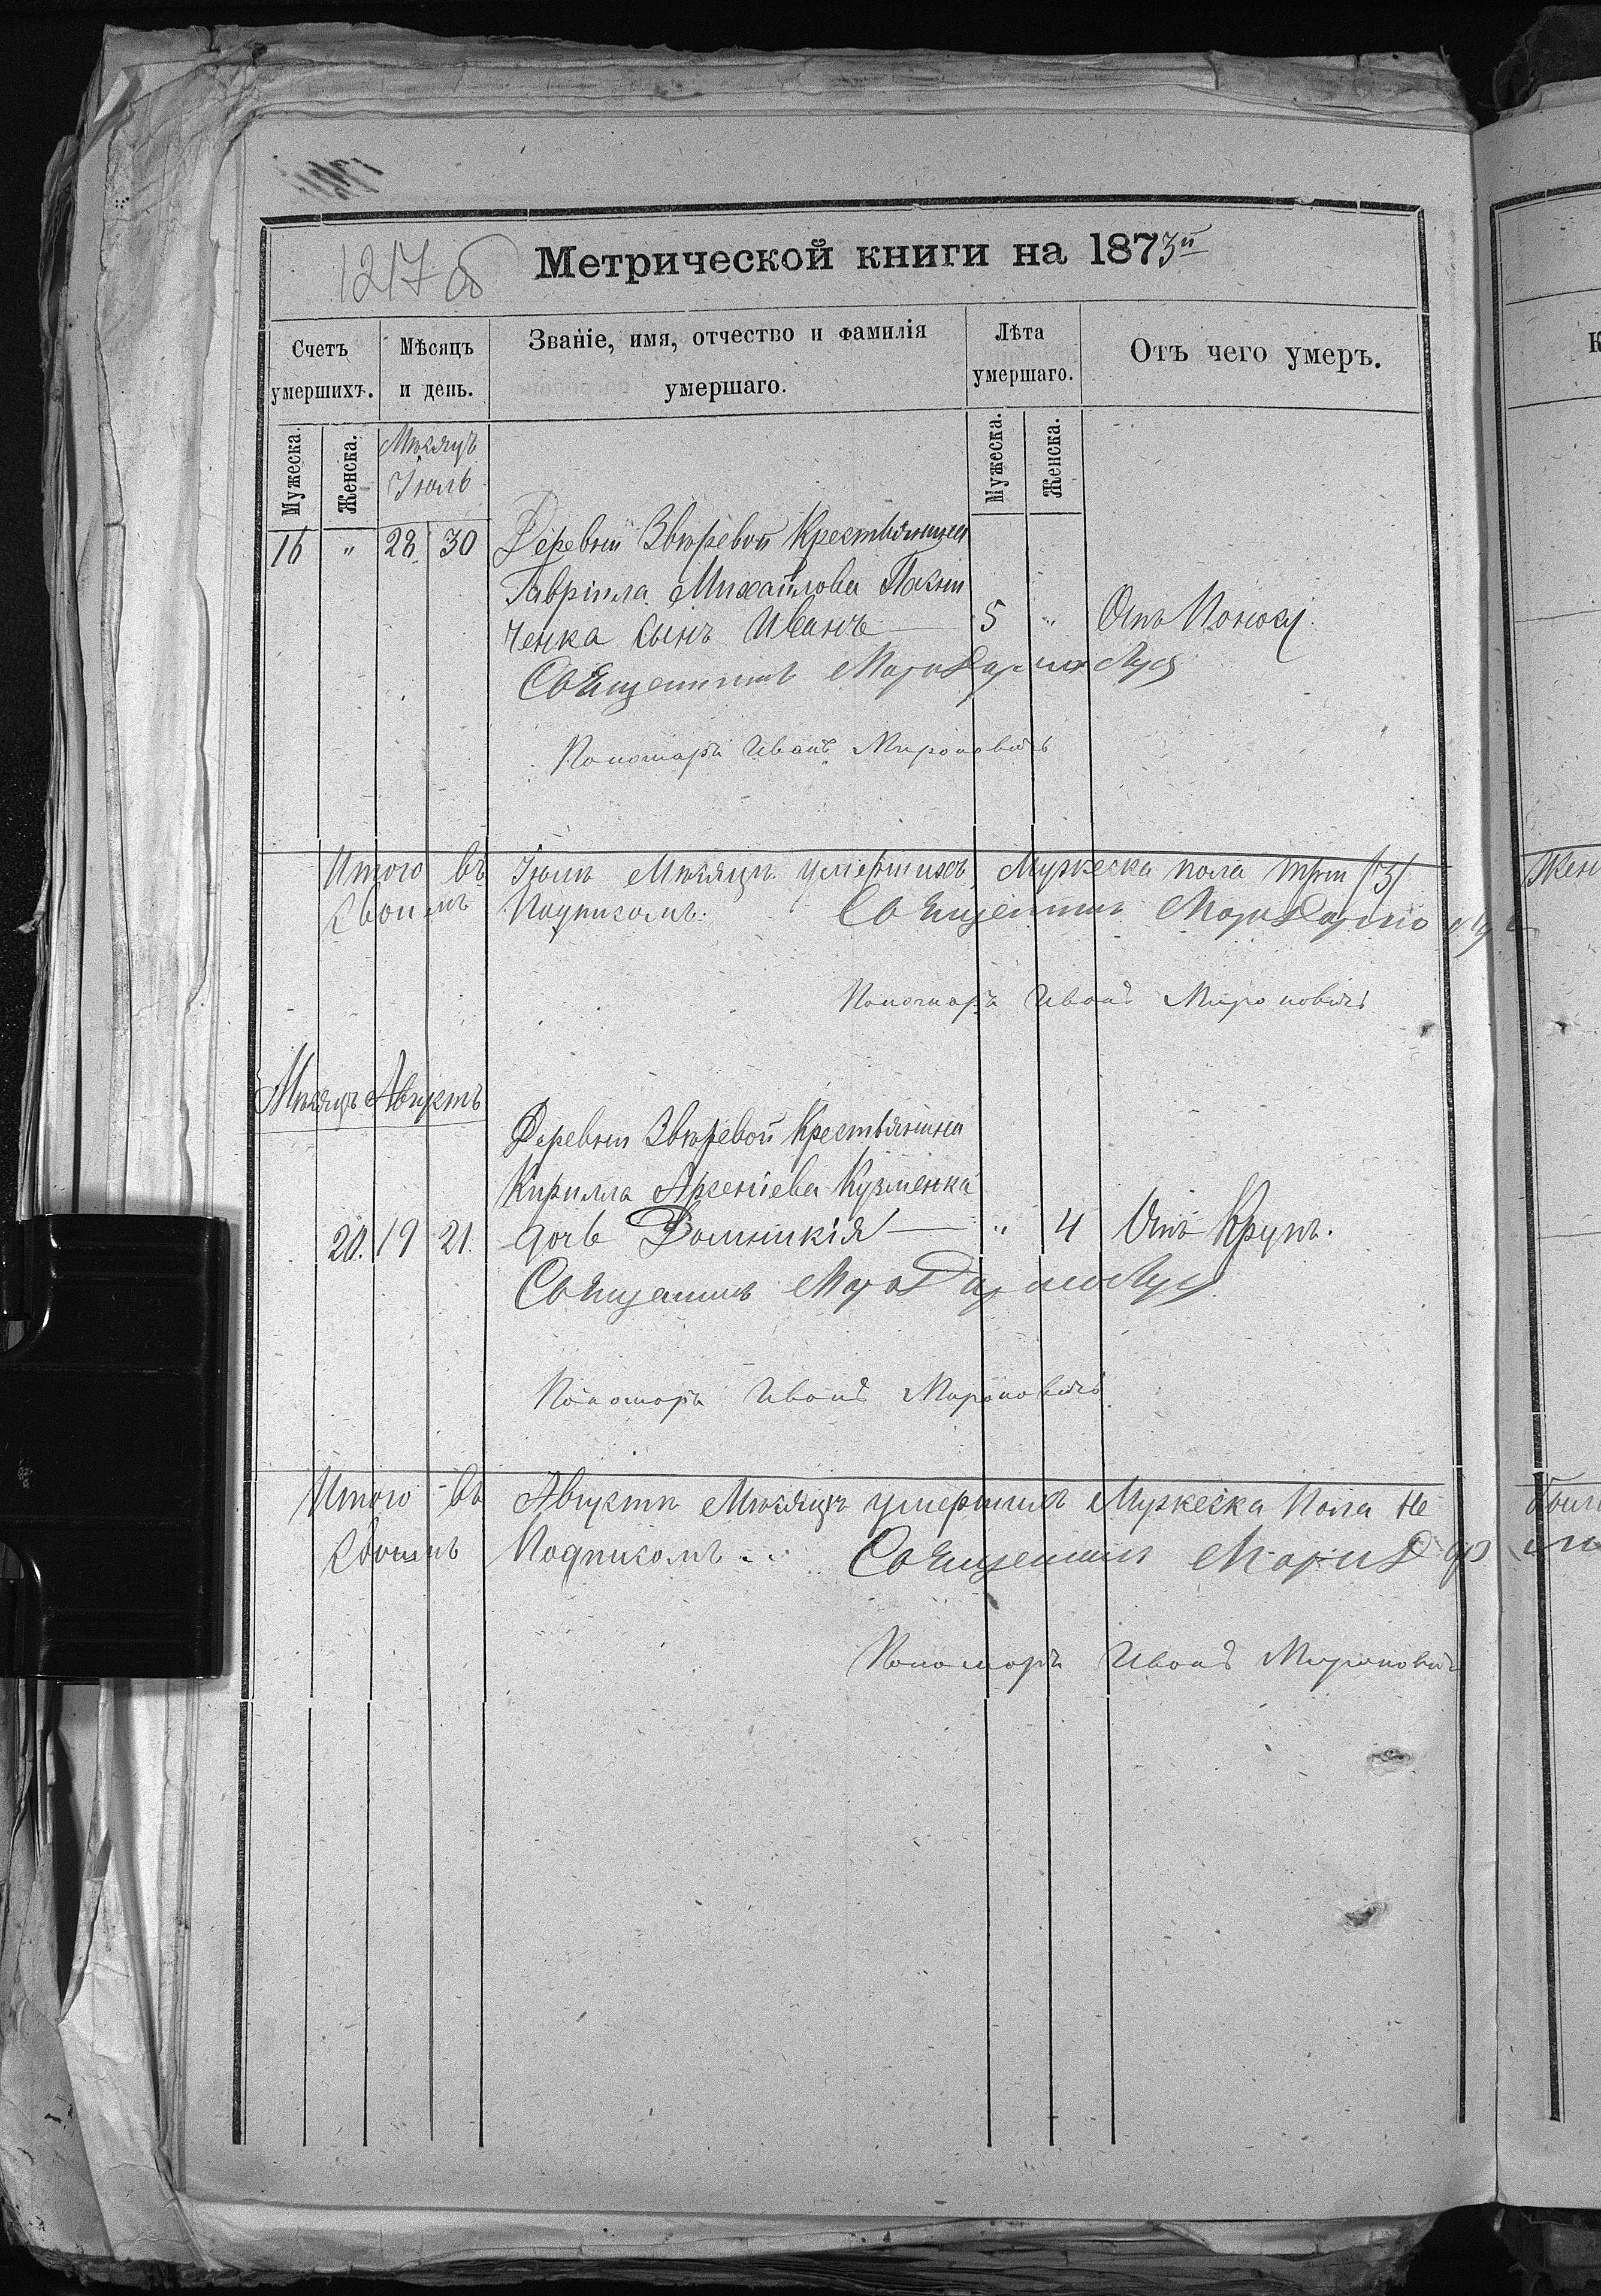 1217 об
Метрической книги на 1873й
Счетъ умершихъ.
Мѣсяцъ и день.
Званіе, имя, отчество и фамилія умершаго.
Лѣта умершаго.
Отъ чего умеръ.
Мужеска.
Женска.
Мѣсяцъ
Іюль
Мужеска.
Женска.
16 " 28 30 Деревни Звѣревой Крестьянина
Гавріила Михайлова
ченка сынъ Иванъ — 5 " Отъ
Священникъ
Пономарь Иванъ Мироновичъ
Итого въ Іюлѣ Мѣсяцѣ умершихъ Мужеска пола три /3/
Подписомъ. Священникъ
Пономарь Иванъ Мироновичъ
Мѣсяцъ Августъ
Деревни Звѣревой Крестьянина
Кирилла Арсеніева Кузменка
20. 19 21. дочь Домникія — " 4 Отъ Крупъ.
Священникъ
Пономарь Иванъ Мироновичъ
Итого въ Августѣ Мѣсяцѣ умершихъ Мужеска Пола не
Подписомъ.. Священникъ
Пономарь Иванъ Мироновичъ